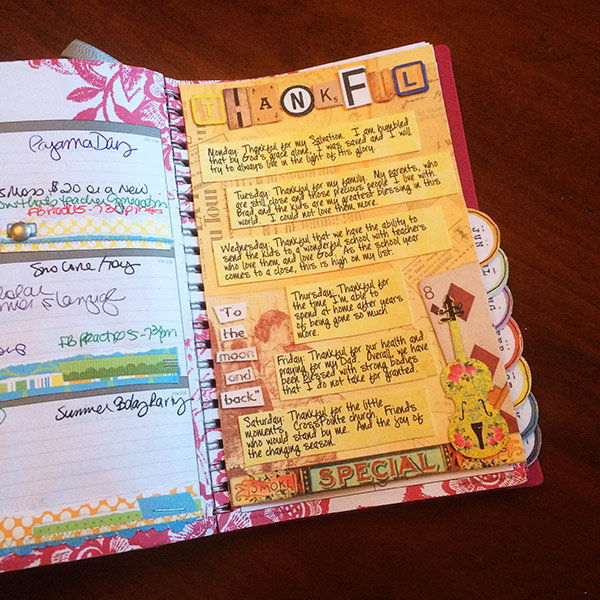 Pajama Day
$20 or a new
Sno Cone/Tray
Summer Bday Party
THANKSFUL
Monday: Thankful for my Salvation. I am humbled
that by God's grace alone, I was saved and I will
try to always live in the light of His glory.
Tuesday: Thankful for my family. My parents, who
are still close and those precious people I live with.
Brad and the kids are my greatest blessing in this
world. I could not love them more.
Wednesday: Thankful that we have the ability to
send the kids to a wonderful school with teachers
who love them and love God. As the school year
comes to a close, this is high on my list.
Thursday: Thankful for
the time I'm able to
spend at home after years
of being gone so much
more.
"To
the
moon
and
back"
8
Friday: Thankful for our health and
praying for my Dad. Overall, we have
been blessed with strong bodies
that I do not take for granted.
Saturday: Thankful for the little
moments, CrossPointe church, Friends
who would stand by me. And the joy of
the changing season.
SMOKE
SPECIAL
JUN